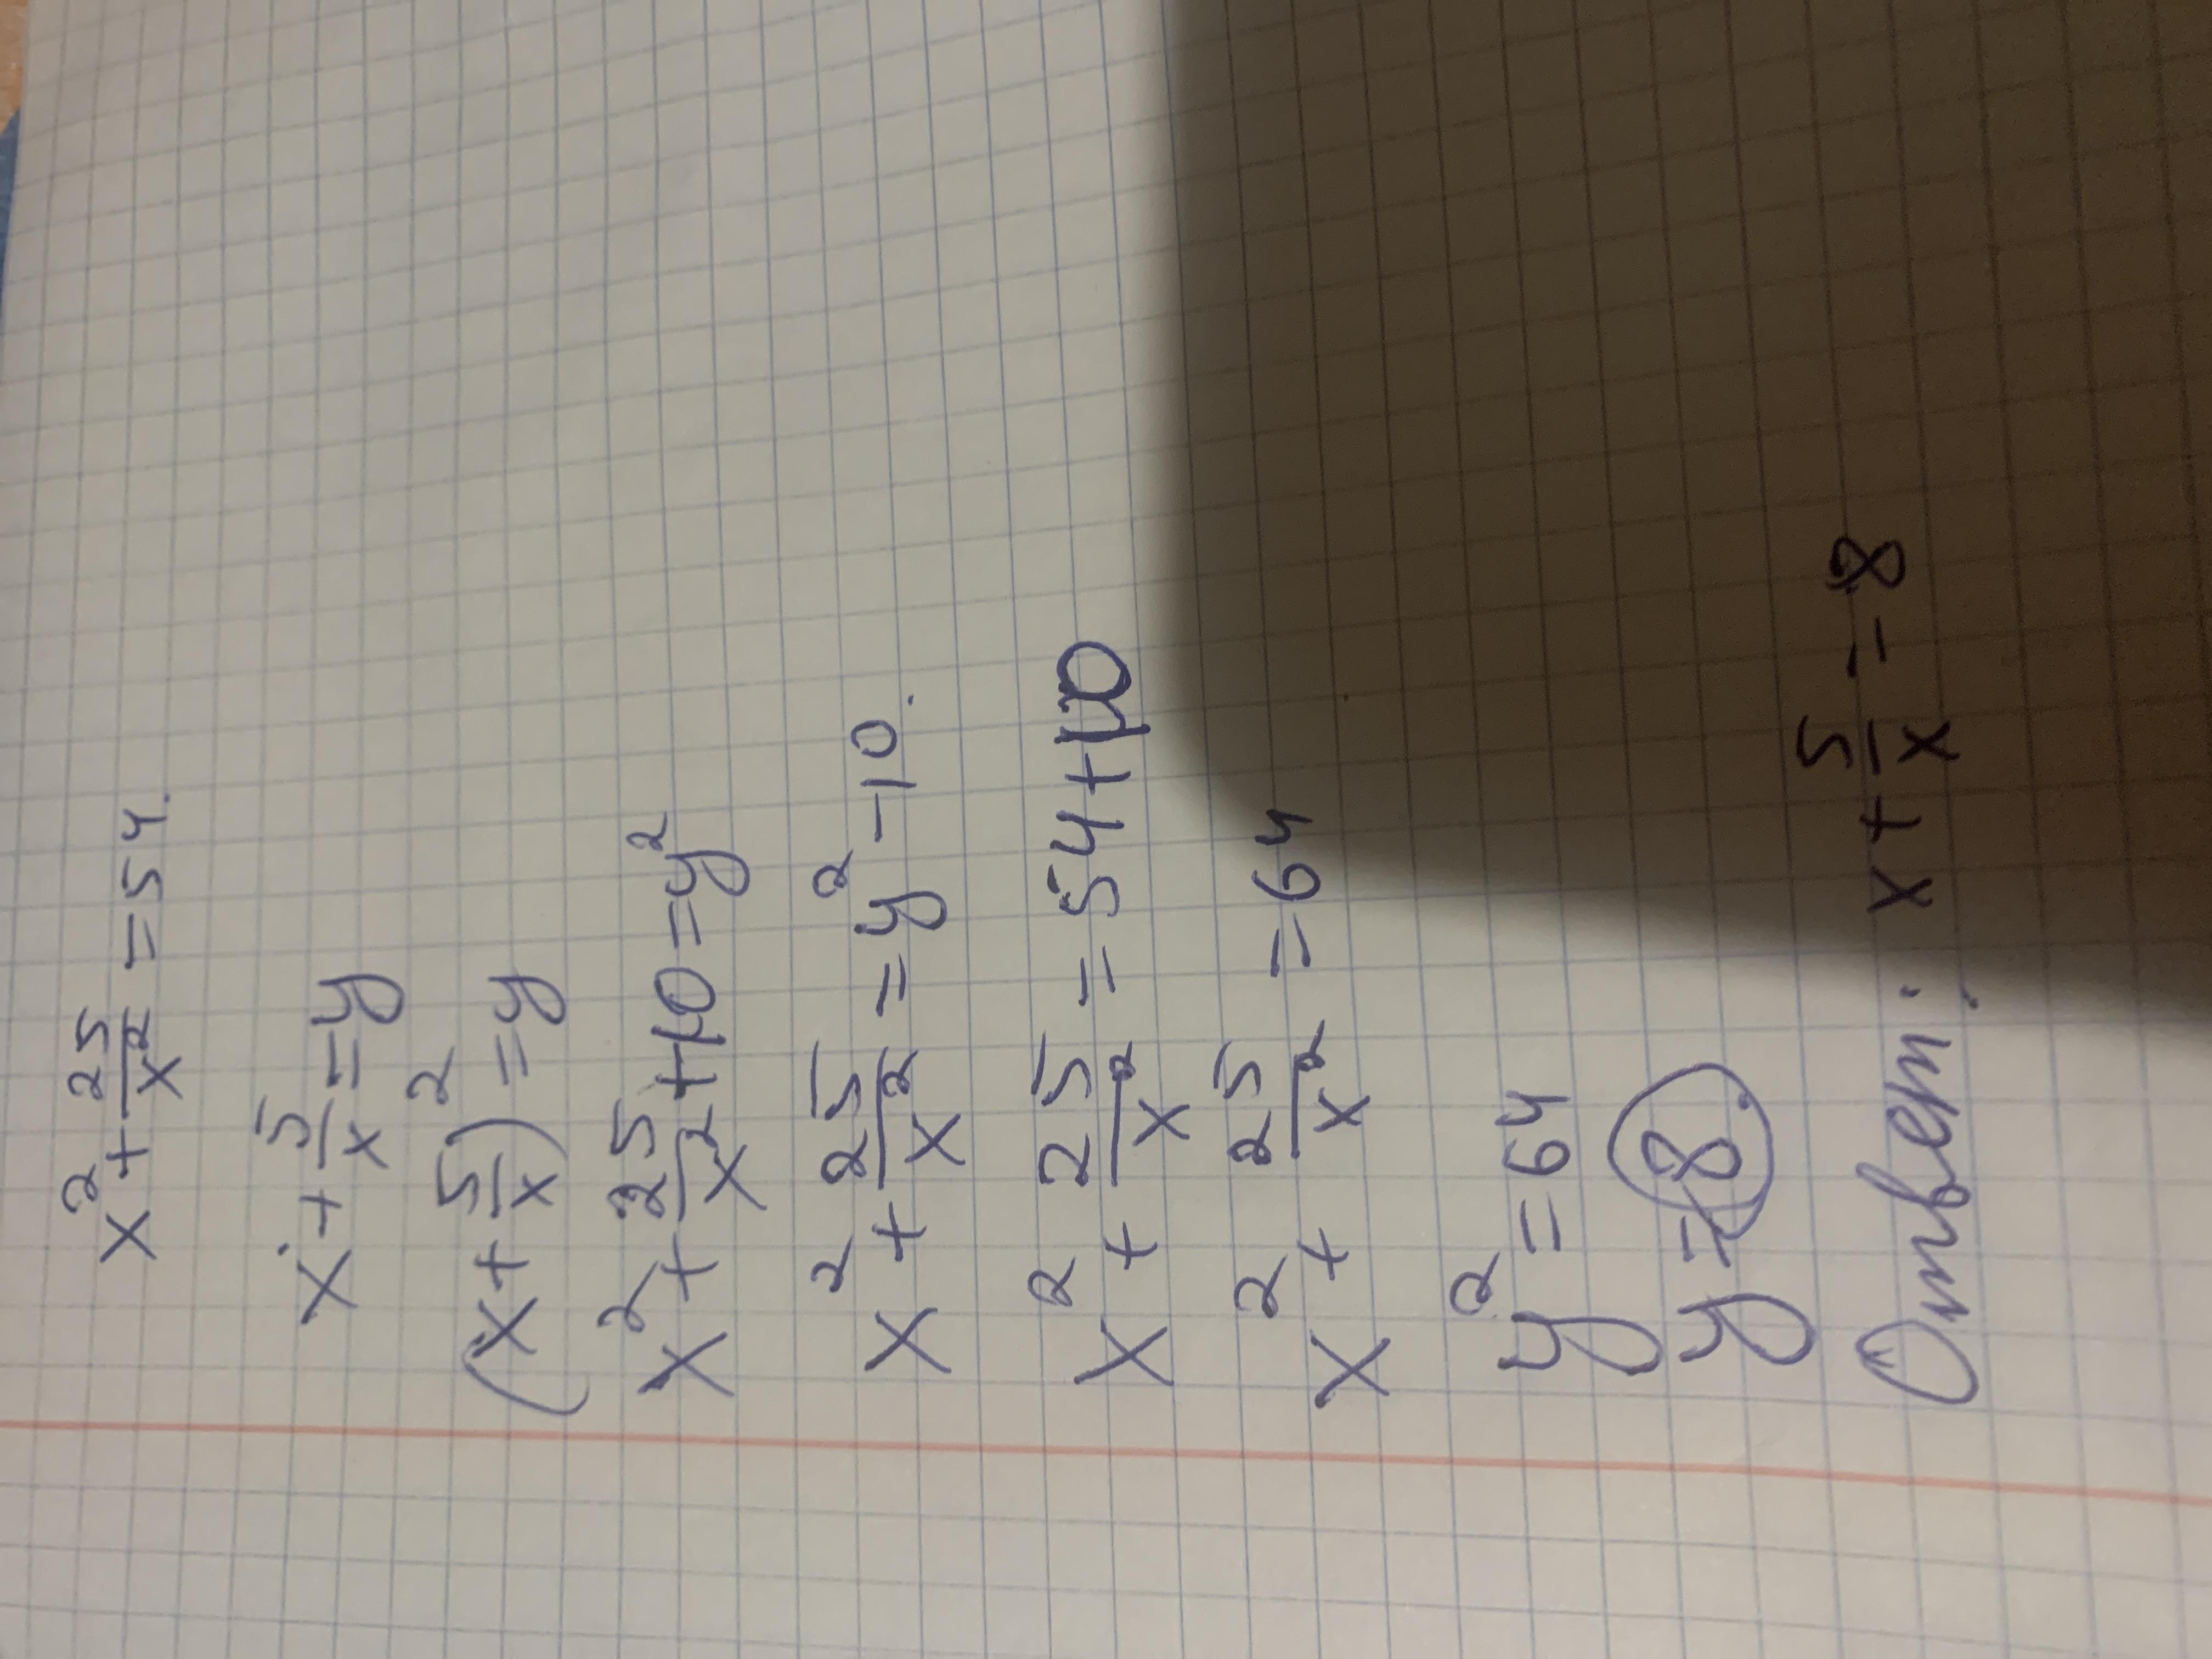 x² + 25/x² = 54.
x + 5/x = y
(x + 5/x)² = y
x² + 25/x² + 10 = y²
x² + 25/x² = y² - 10.
x² + 25/x² = 54 + 10
x² + 25/x² = 64
y² = 64
y = 8.
Ответ: x + 5/x = 8